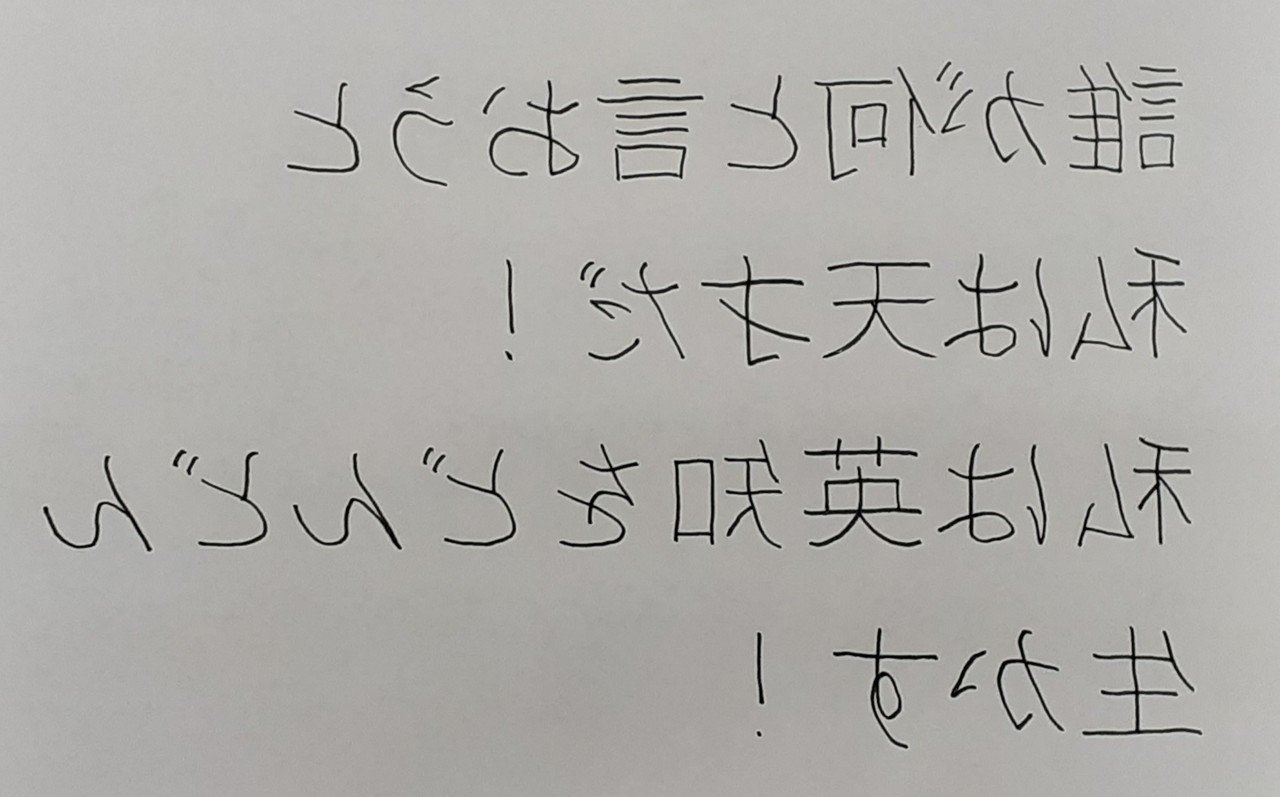 誰が何と言おうと
私は天才だ!
私は英知をどんどん
生かす!